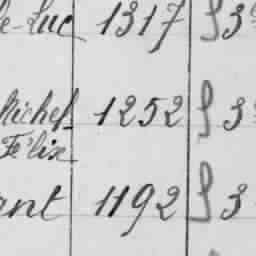 e-Luc 1317 3
Michel- 1252 3
Félix
ant 1192 3